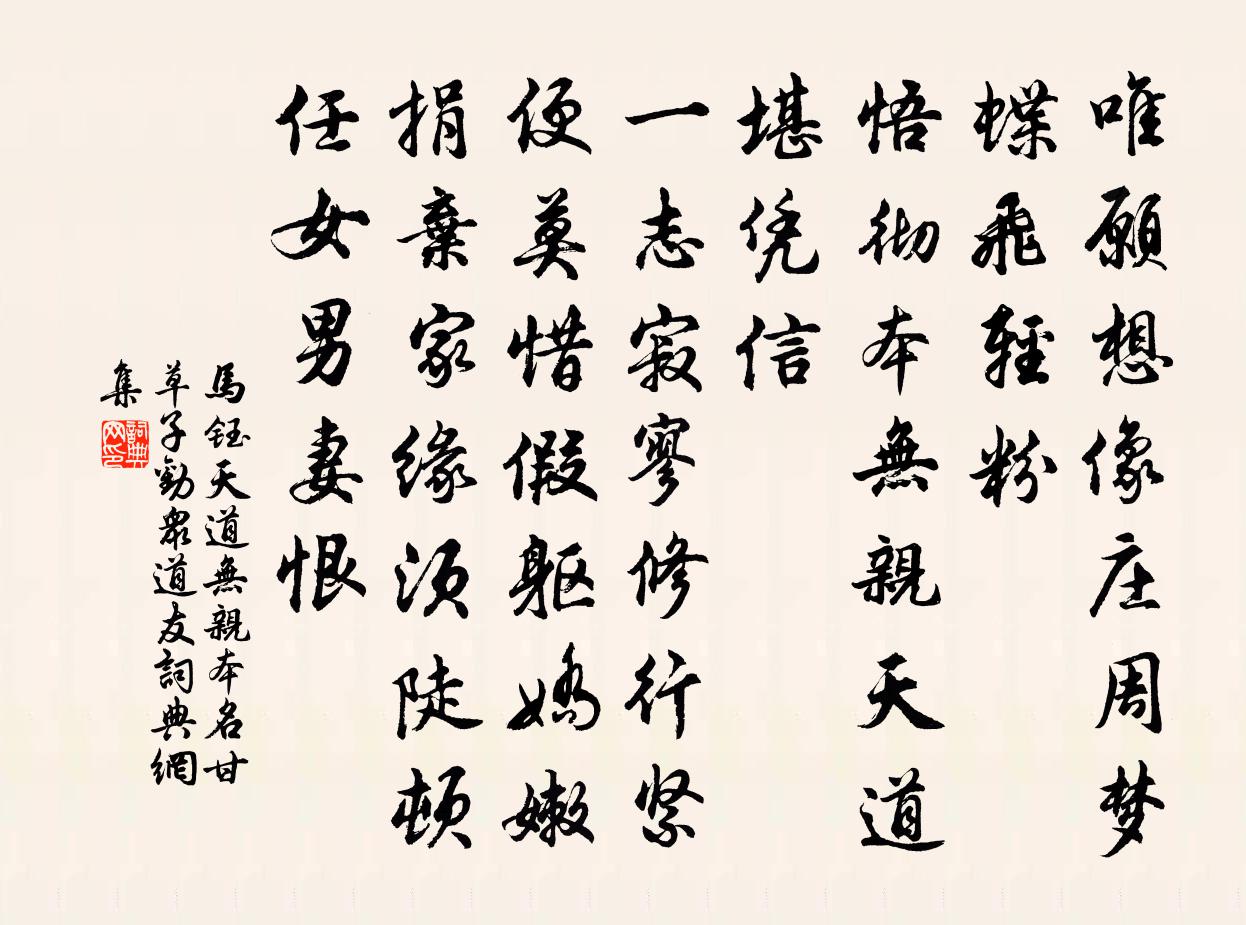 唯願想像庄周梦
蝶飛輕粉
悟彻本無親天道
堪凭信
一志寂寥修行緊
便莫惜假軀嬌嫩
捐棄家緣須陡頓
任女男妻恨
馬鈺天道無親本名甘
草子勸衆道友詞典網
集
詞典網印